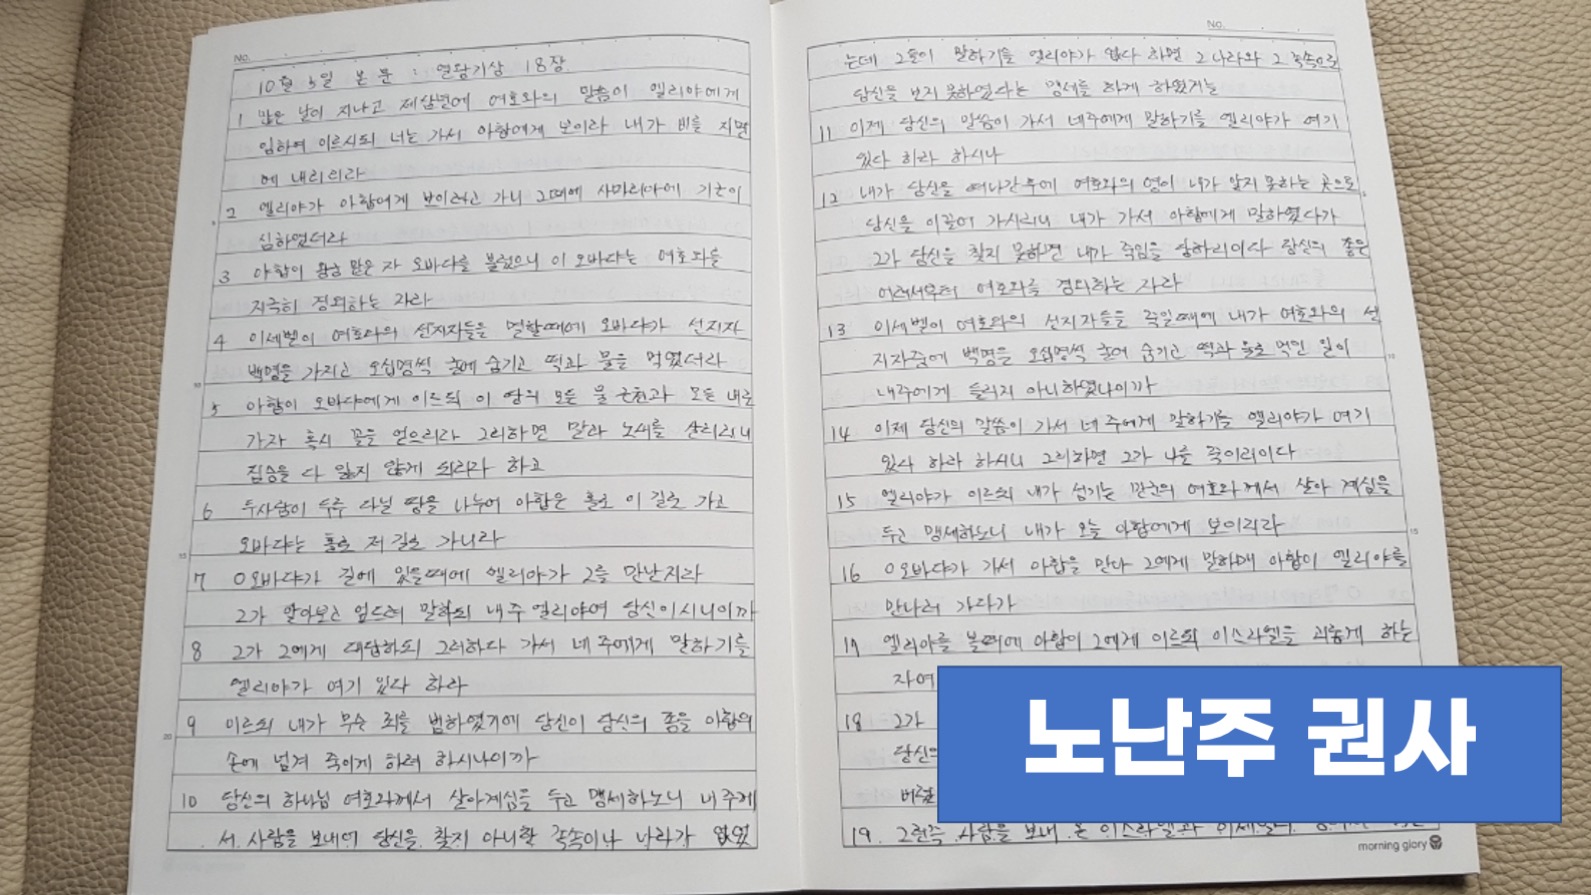 No.
10월 5일 본문 : 열왕기상 18장
1 많은 날이 지나고 제삼년에 여호와의 말씀이 엘리야에게
임하여 이르시되 너는 가서 아합에게 보이라 내가 비를 지면
에 내리리라
2 엘리야가 아합에게 보이려고 가니 그때에 사마리아에 기근이
심하였더라
3 아합이 왕궁 맡은 자 오바댜를 불렀으니 이 오바댜는 여호와를
지극히 경외하는 자라
4 이세벨이 여호와의 선지자들을 멸할때에 오바댜가 선지자
백명을 가지고 오십명씩 굴에 숨기고 떡과 물을 먹였더라
5 아합이 오바댜에게 이르되 이 땅의 모든 물 근원과 모든 내로
가자 혹시 꼴을 얻으리라 그리하면 말과 노새를 살리리니
짐승을 다 잃지 않게 되리라 하고
6 두사람이 두루 다닐 땅을 나누어 아합은 홀로 이 길로 가고
오바댜는 홀로 저 길로 가니라
7 O오바댜가 길에 있을때에 엘리야가 그를 만난지라
그가 알아보고 엎드려 말하되 내 주 엘리야여 당신이시니이까
8 그가 그에게 대답하되 그러하다 가서 네 주에게 말하기를
엘리야가 여기 있다 하라
9 이르되 내가 무슨 죄를 범하였기에 당신이 당신의 종을 아합의
손에 넘겨 죽이게 하려 하시나이까
10 당신의 하나님 여호와께서 살아계심을 두고 맹세하노니 내 주께
서 사람을 보내어 당신을 찾지 아니한 족속이나 나라가 없었
No.
는데 그들이 말하기를 엘리야가 없다 하면 그 나라와 그 족속으로
당신을 보지 못하였다는 맹세를 하게 하였거늘
11 이제 당신의 말씀이 가서 네주에게 말하기를 엘리야가 여기
있다 하라 하시나
12 내가 당신을 떠나간후에 여호와의 영이 내가 알지 못하는 곳으로
당신을 이끌어 가시리니 내가 가서 아합에게 말하였다가
그가 당신을 찾지 못하면 내가 죽임을 당하리이다 당신의 종은
어려서부터 여호와를 경외하는 자라
13 이세벨이 여호와의 선지자들을 죽일때에 내가 여호와의 선
지자중에 백명을 오십명씩 굴에 숨기고 떡과 물로 먹인 일이
내주에게 들리지 아니하였나이까
14 이제 당신의 말씀이 가서 네 주에게 말하기를 엘리야가 여기
있다 하라 하시니 그리하면 그가 나를 죽이리이다
15 엘리야가 이르되 내가 섬기는 만군의 여호와께서 살아 계심을
두고 맹세하노니 내가 오늘 아합에게 보이리라
16 O오바댜가 가서 아합을 만나 그에게 말하매 아합이 엘리야를
만나러 가다가
17 엘리야를 볼때에 아합이 그에게 이르되 이스라엘을 괴롭게 하는
자여
18 그가
당신의
버렸
19 그런즉 사람을 보내 온 이스라엘과 이세벨의
노난주 권사
morning glory